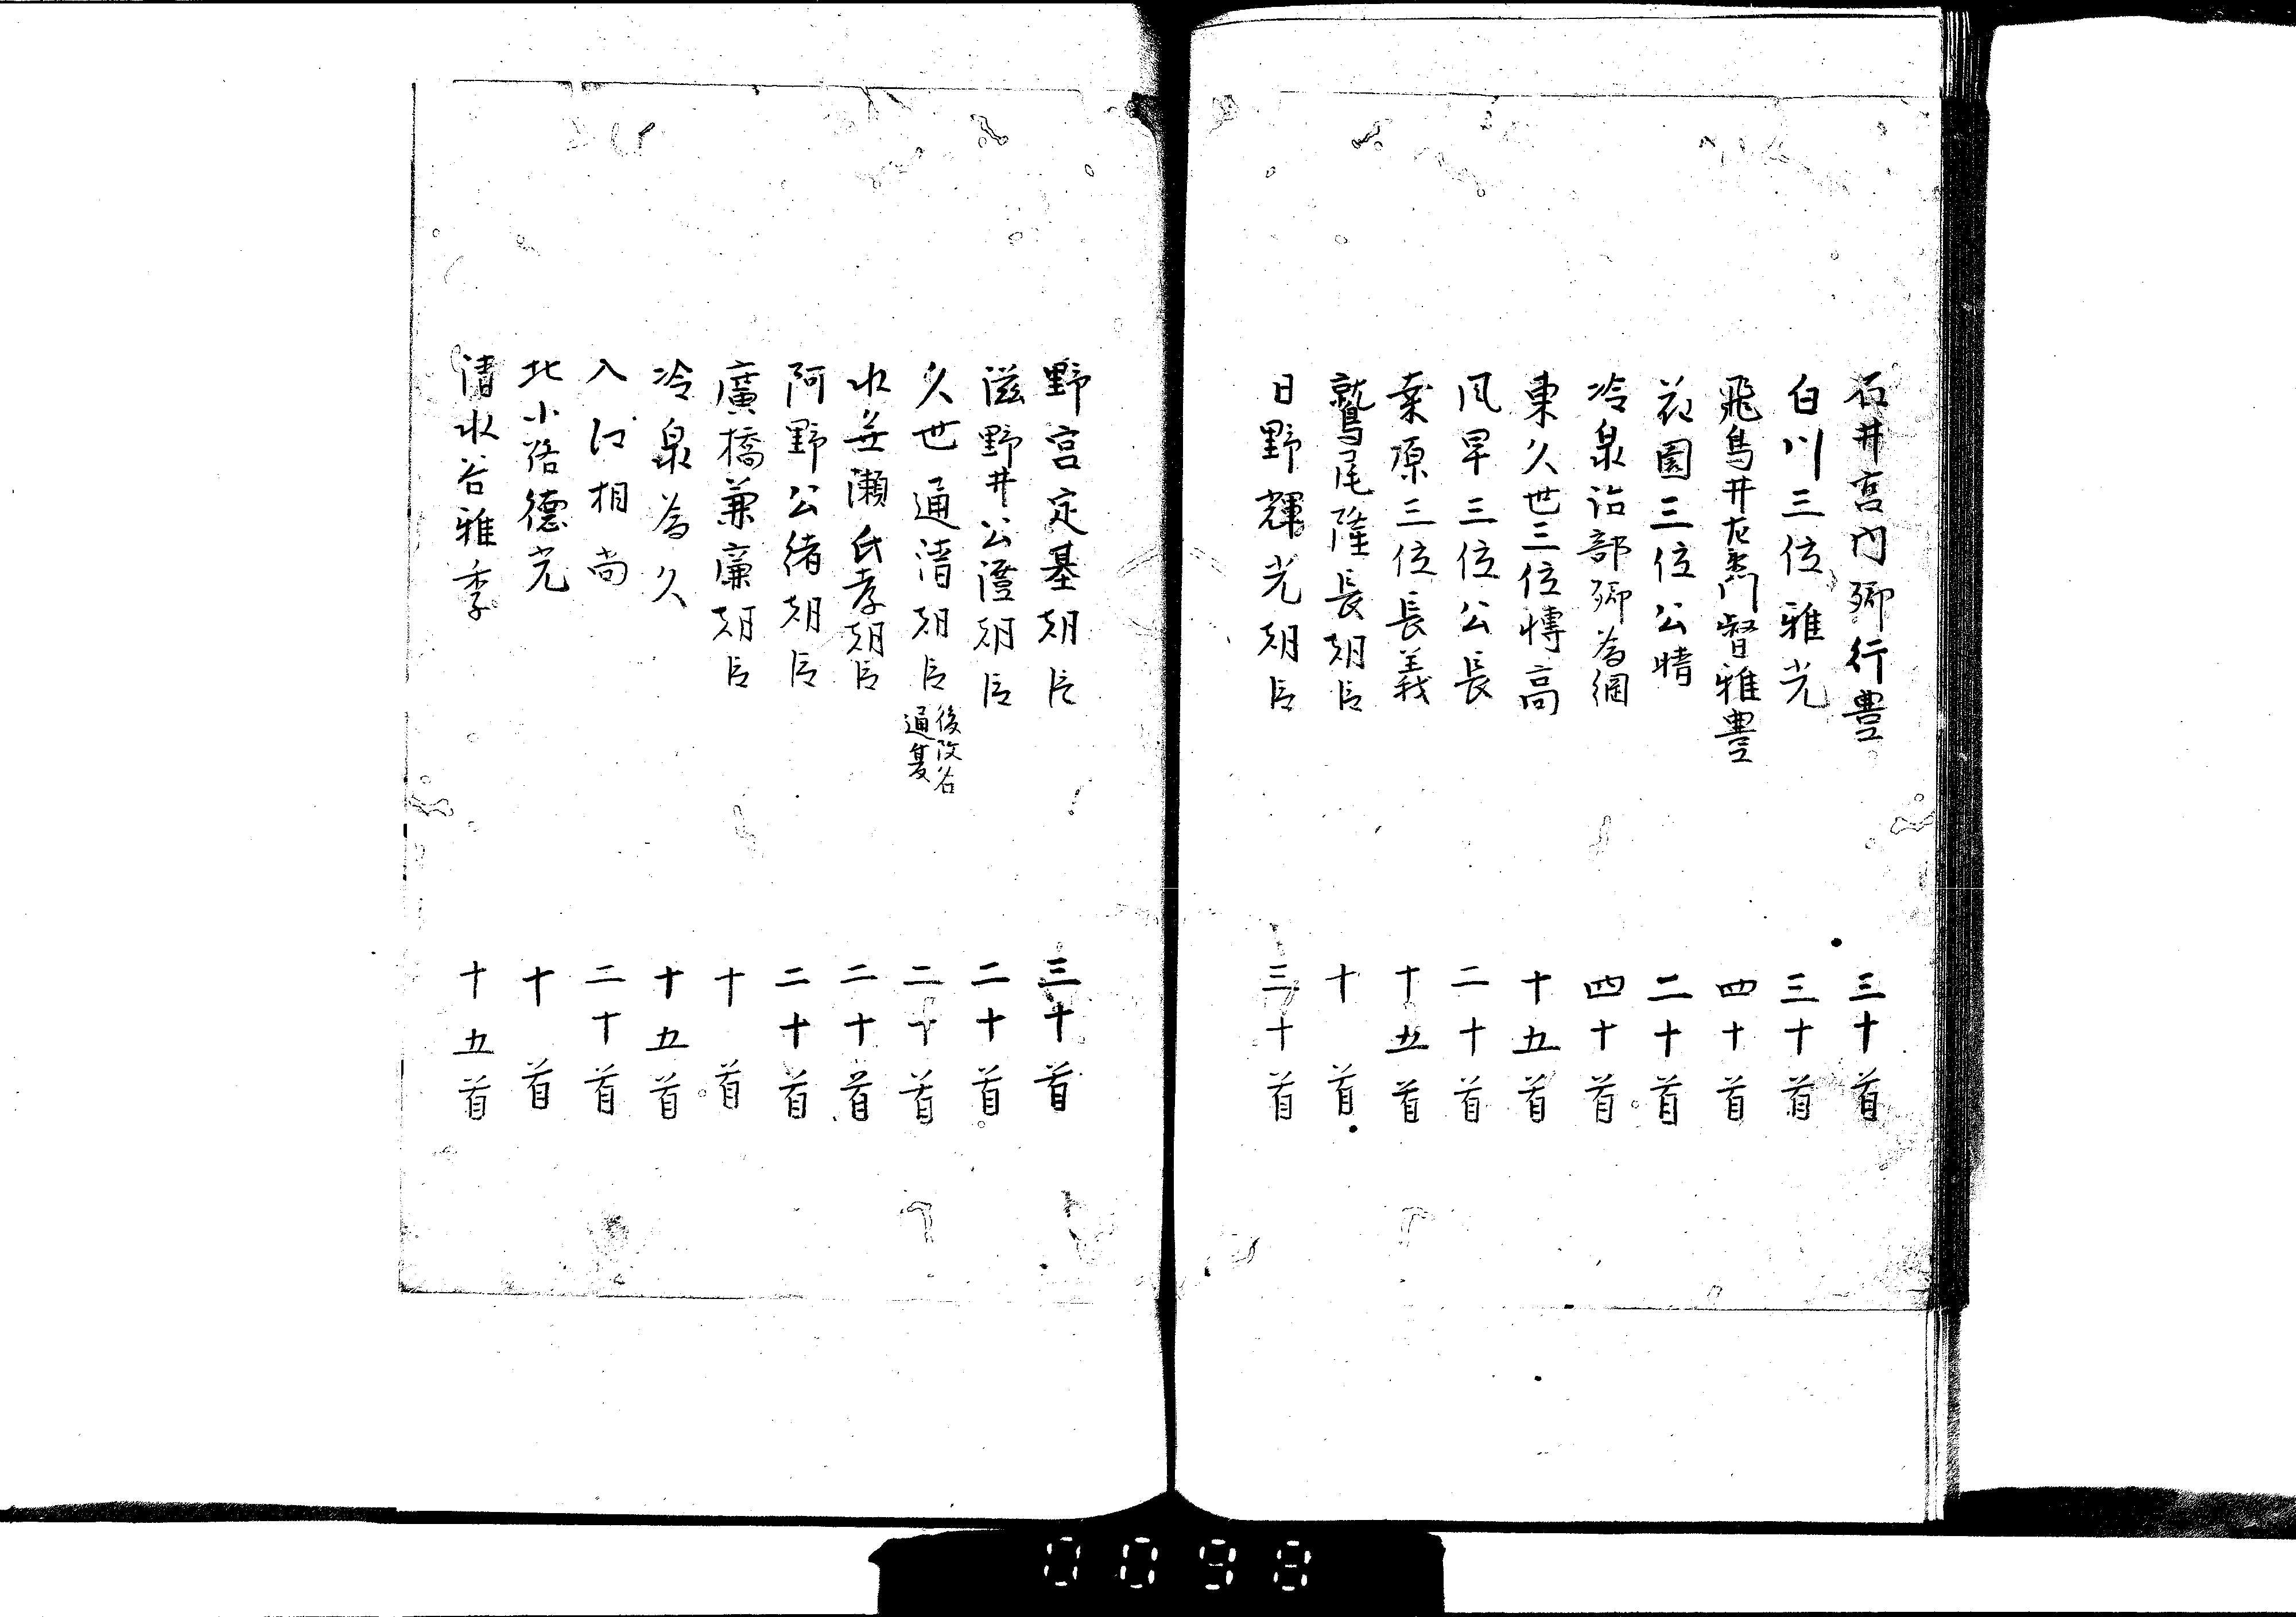 石井宮内卿行豊 三十首
白川三位雅光 三十首
飛鳥井左衛門督雅豊 四十首
花園三位公晴 二十首
冷泉治部卿為綱 四十首
東久世三位博高 十五首
風早三位公長 二十首
桒原三位長義 十五首
鷲尾隆長朝臣 十首
日野輝光朝臣 三十首
野宮定基朝臣 三十首
滋野井公澄朝臣 二十首
久世通清朝臣 後改名通夏 二十首
水無瀬氏孝朝臣 二十首
阿野公緒朝臣 二十首
廣橋兼廉朝臣 十首
冷泉為久 十五首
入江相尚 二十首
北小路徳光 十首
清水谷雅季 十五首
0098